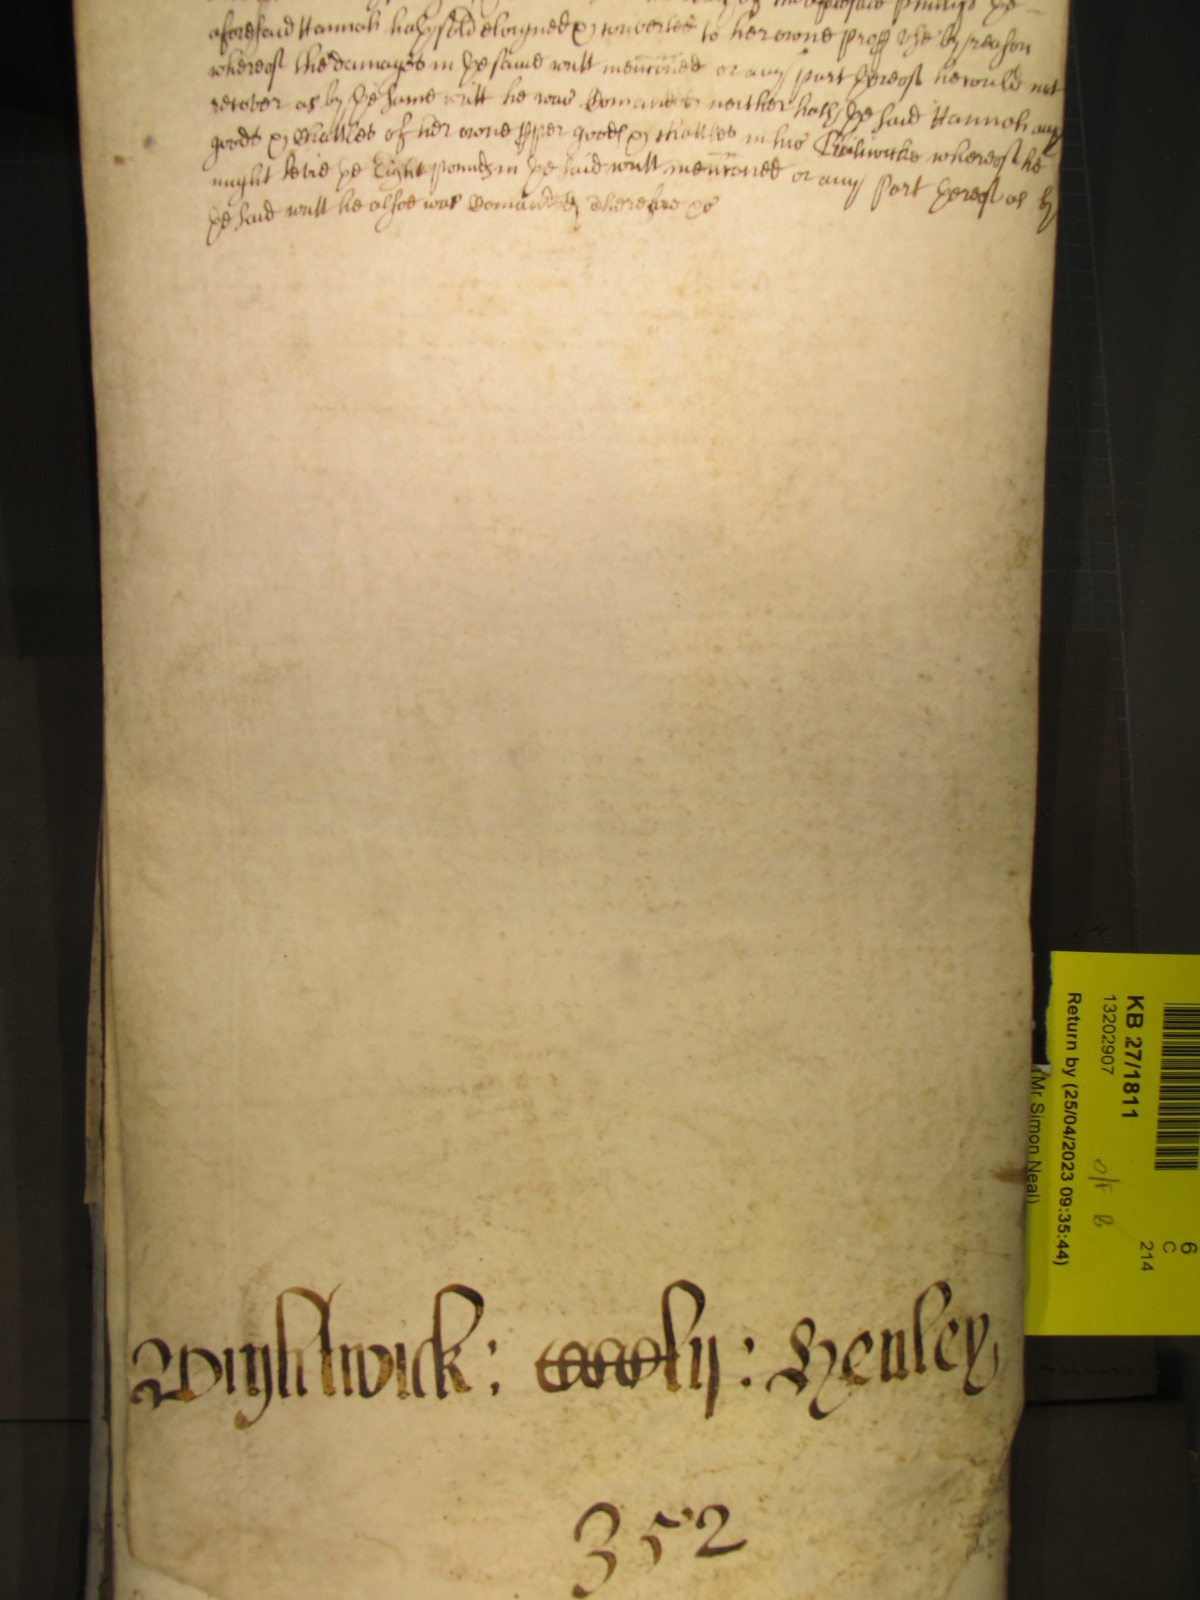 aforesaid Hannah hath sold eloigned & converted to her owne prop use by reason
whereof the damages in ye same writt menconed or any part yereof he could not
recover as by ye same writt he was Comanded neither hath ye said Hannah any
goods & Chattles of her owne pper goods & chattles in his Bailiwicke whereof he
might levie ye Eight pounds in ye said writt menconed or any Part yereof as by
ye said writt he alsoe was Comanded Therefore &c
Wightwick: Cooly: Henley
352
KB 27/1811
13202907
Return by (25/04/2023 09:35:44)
(Mr Simon Neal)
6
C
214
O/F B